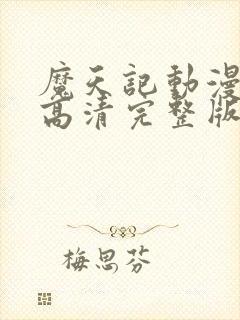 魔天記動漫
高清完整版
梅思芬